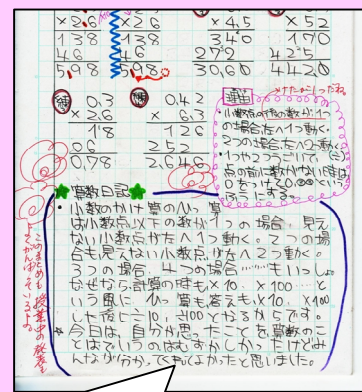 ×2.6 ×26 ×4.5 ×52
138 138 340 170
46 46 272 425
5.98 598 30.60 4420
0.3 0.42
×2.6 ×6.3
18 126
06 252
0.78 2.646
理由
・小数点の後の数が1つ
の場合、左へ1つ動く。
2つの場合、左へ2つ動く
・1つや2つうごいて、
点の前に数がない時は
0をつける
ふうにする。
算数日記
・小数のかけ算のひっ算
は小数点以下の数が1つの場合、見え
ない小数点が左へ1つ動く。2つの場
合も見えない小数点が左へ2つ動く。
3つの場合、4つの場合……もいっしょ。
なぜなら、計算の時も×10、×100…と
いう風に、ひっ算も答えも、×10、×100
した後に÷10、÷100となるからです。
☆今日は、自分が思ったことを算数のこ
とばでいうのはむずかしかったけどみ
んなが分かってくれてよかったと思いました。